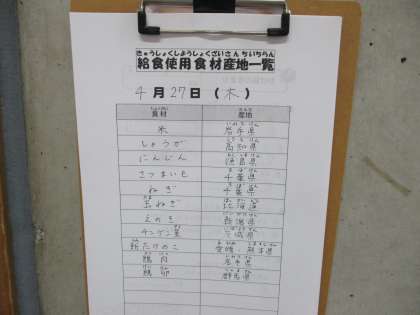 きゅうしょくしようしょくざいさんちいちらん
給食使用食材産地一覧
4月27日(木)
食材 産地
米 岩手県
しょうが 高知県
にんじん 徳島県
さつまいも 千葉県
ねぎ 千葉県
玉ねぎ 北海道
えのき 新潟県
チンゲン菜 茨城県
新たけのこ 愛媛・熊本県
鶏肉 岩手県
鶏卵 群馬県